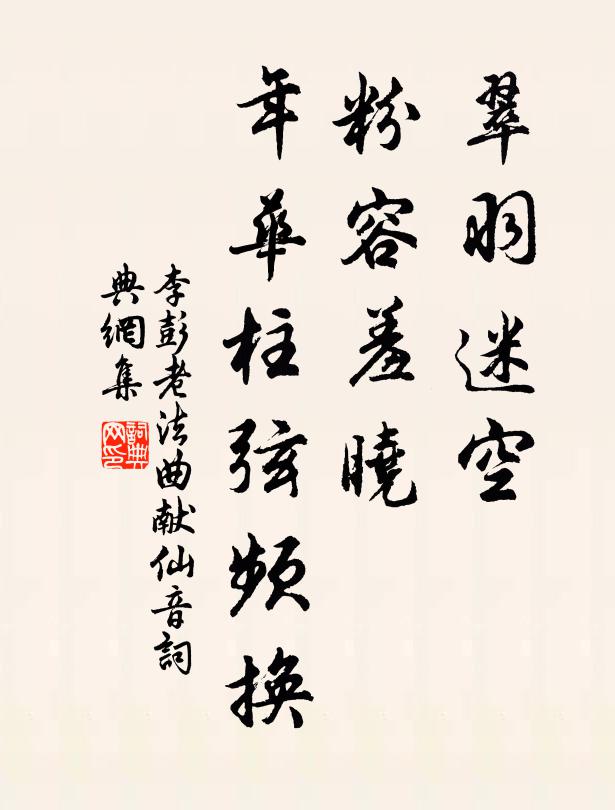 翠羽迷空
粉容羞曉
年華柱弦頻換
李彭老法曲献仙音詞
典網集
詞典
网印